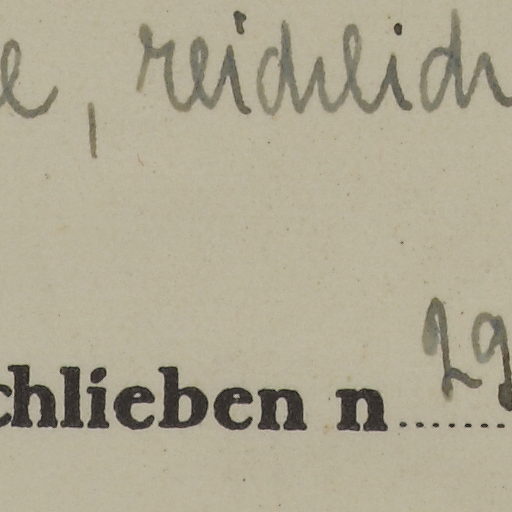 e, reichlich
chlieben n 29